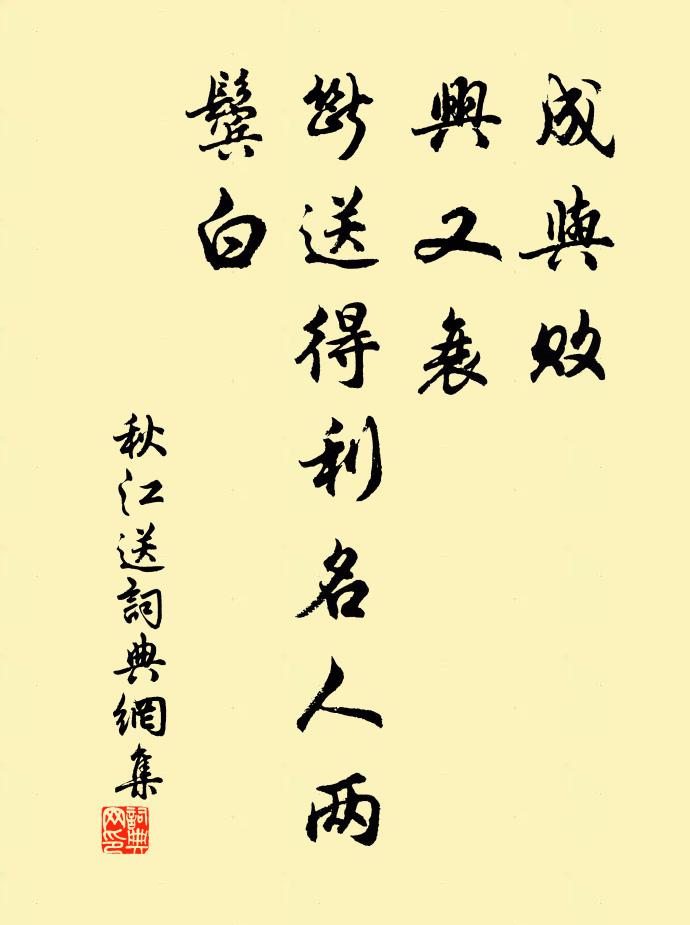 成與敗
興又衰
斷送得利名人两
鬢白
秋江送詞典網集
詞典
网印